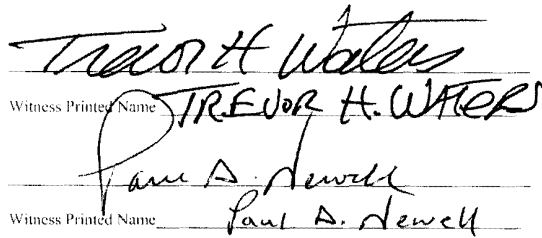 Trevor H Waters
Witness Printed Name TREVOR H. WATERS
Paul A. Newell
Witness Printed Name Paul A. Newell